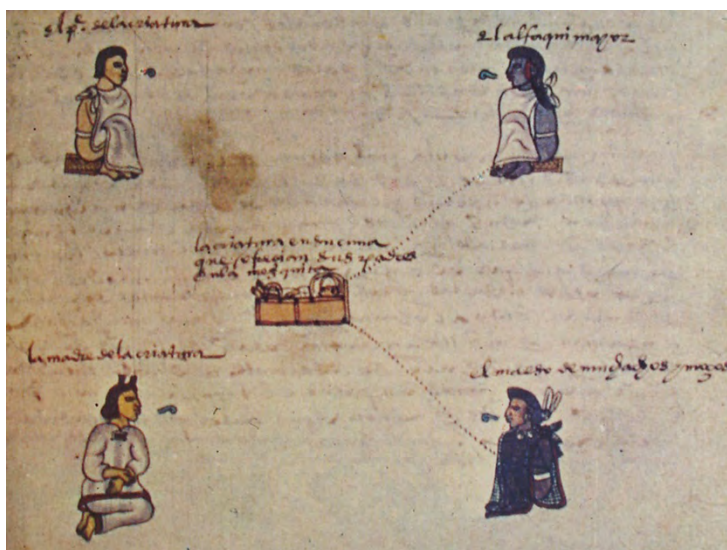 el pe. de la criatura
el alfaqui mayor
la criatura en su cuna
que ofrecian sus padres
en la mezquita
la madre de la criatura
el maestro de muchachos y moços